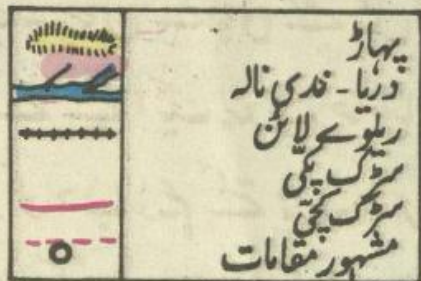 پہاڑ
دریا - ندی نالہ
ریلوے لائن
سڑک پکّی
سڑک کچّی
مشہور مقامات